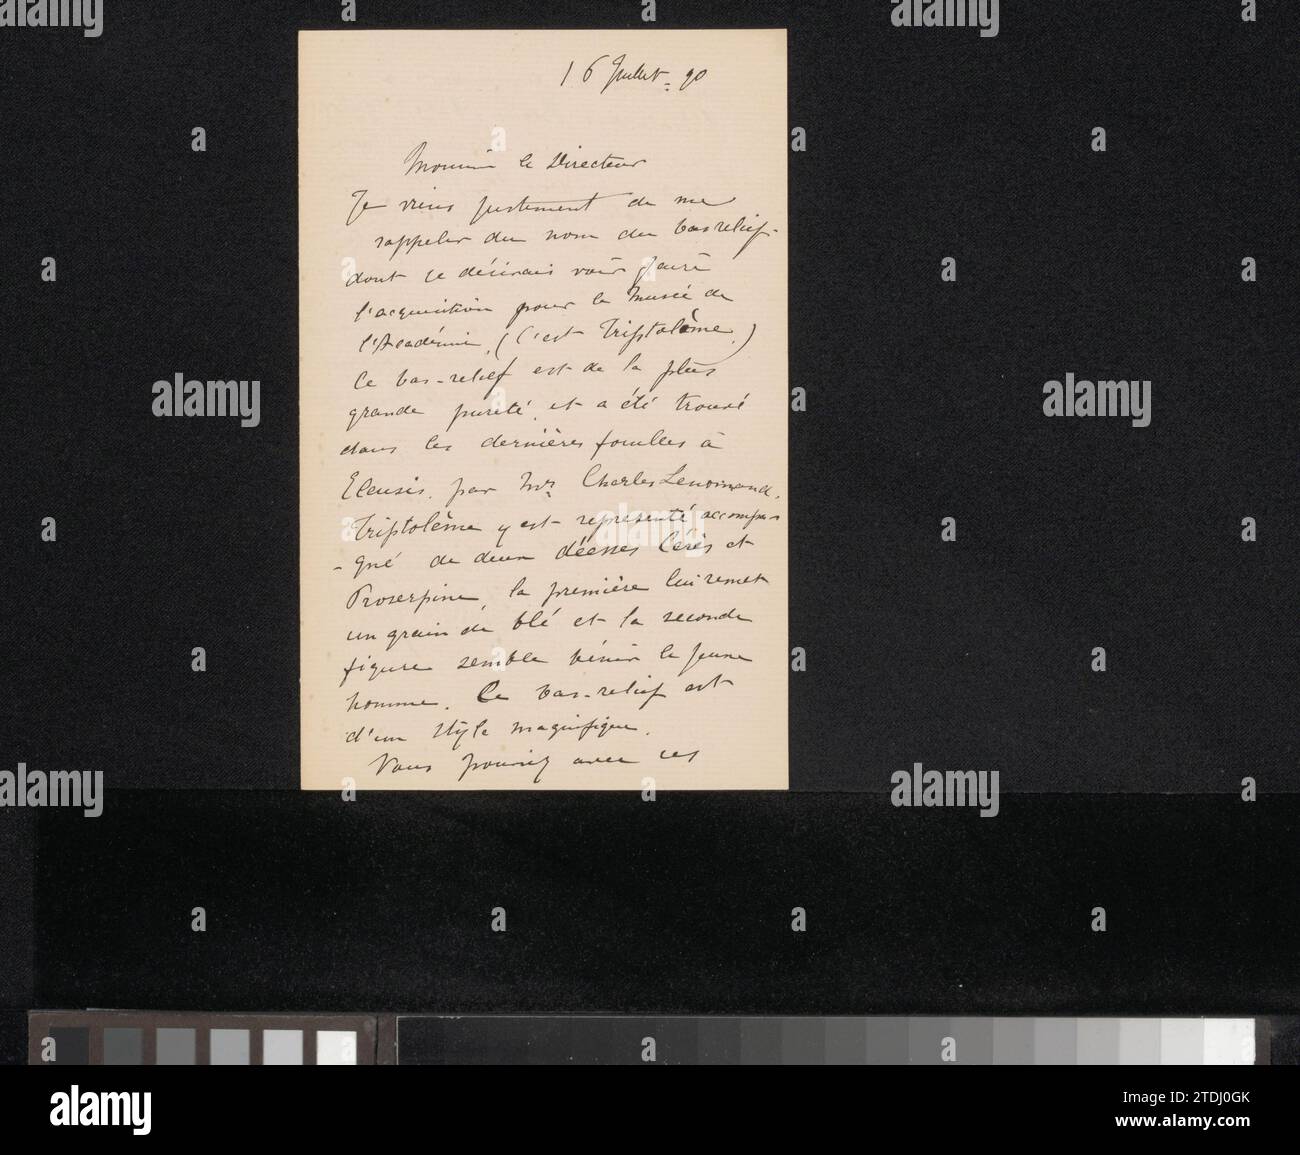 16 Juillet = 90
Monsieur le Directeur
Je viens justement de me
rappeler du nom du bas relief-
dont je désirais voir faire
l'acquisition pour le Musée de
l'Académie. (C'est Triptolème.)
Ce bas-relief est de la plus
grande pureté, et a été trouvé
dans les dernières fouilles à
Eleusis. par Mr Charles Lenormand.
Triptolème y est représenté accompa
-gné de deux déesses Cérès et
Proserpine, la première lui remet
un grain de blé et la seconde
figure semble bénir le jeune
homme. Ce bas-relief est
d'un style magnifique.
Vous pourriez avec ces
alamy
Image ID: 2TDJ0GK
www.alamy.com